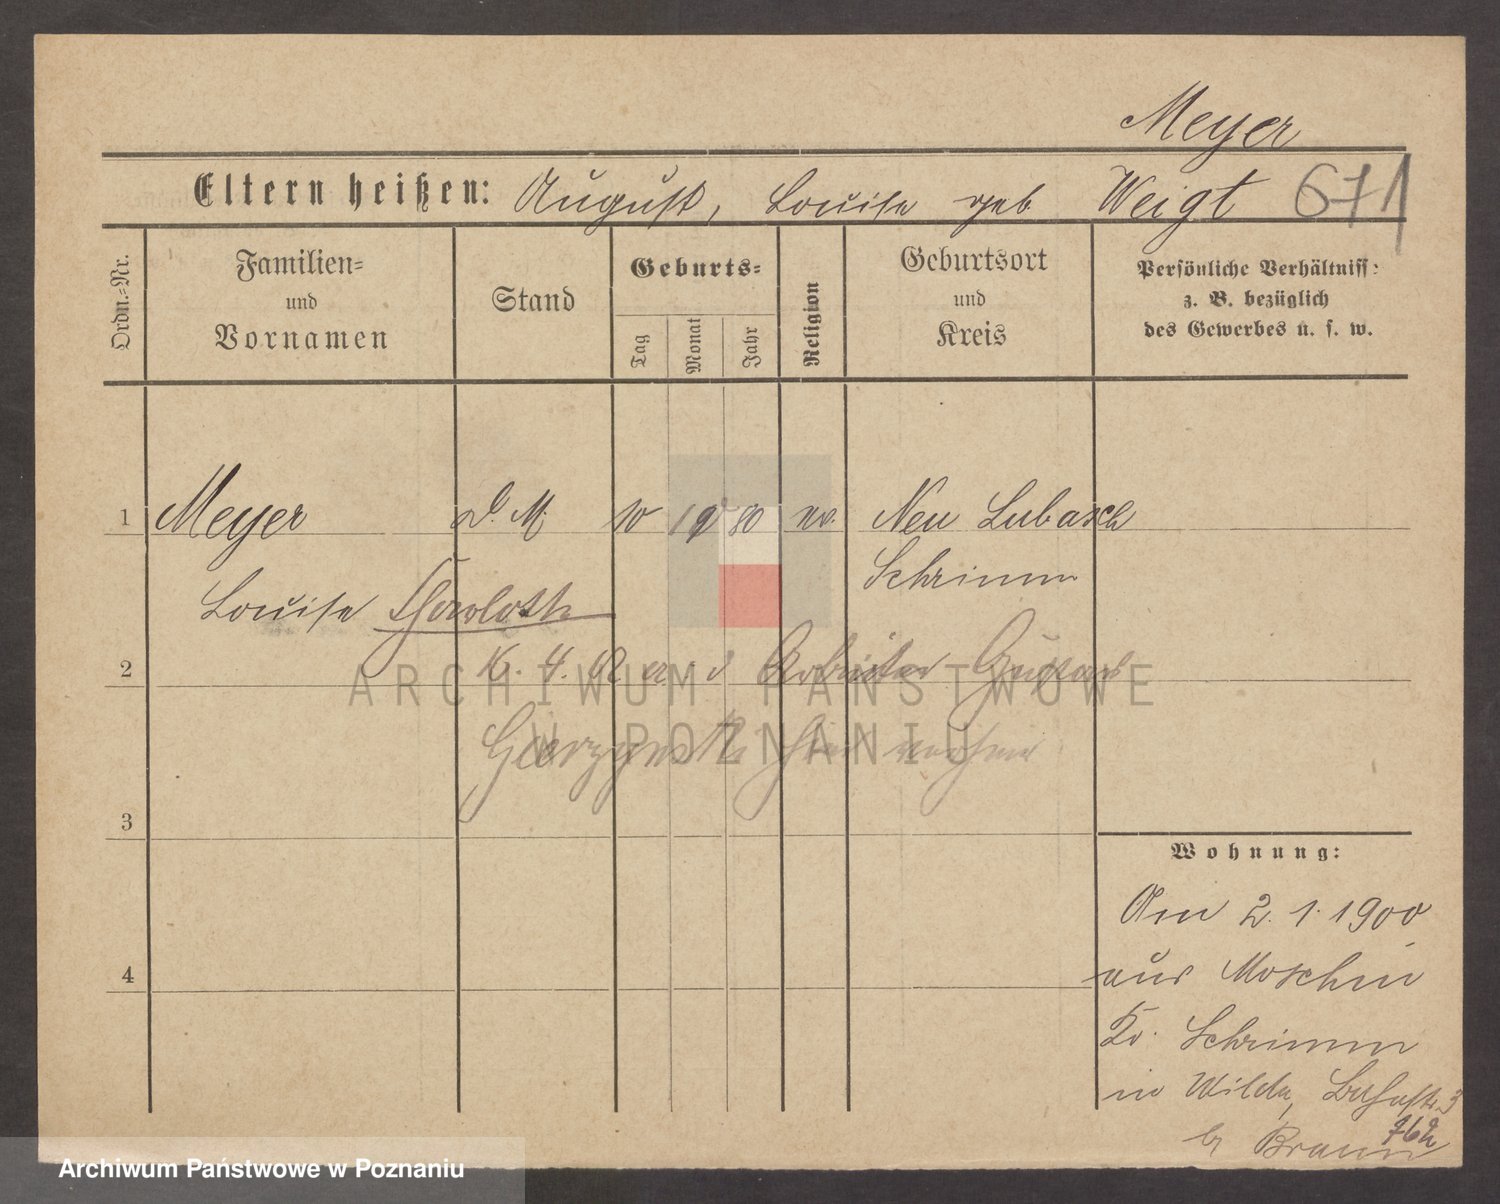 Meyer
Eltern heißen: August, Louise geb Weigt 671
Ordn.-Nr.
Familien-
und
Vornamen
Stand
Geburts-
Tag
Monat
Jahr
Religion
Geburtsort
und
Kreis
Persönliche Verhältnisse
z. B. bezüglich
des Gewerbes u. s. w.
1 Meyer D. M. 10 10 80 ev. Neu Lubasch
Louise Schrimm
2 Arbeiter Gustav
ARCHIWUM PAŃSTWOWE
W POZNANIU
3
Wohnung:
Am 2. 1. 1900
4
aus Moschin
Kr. Schrimm
in Wilda, Bahnstr. 3
b/ Braun
Archiwum Państwowe w Poznaniu